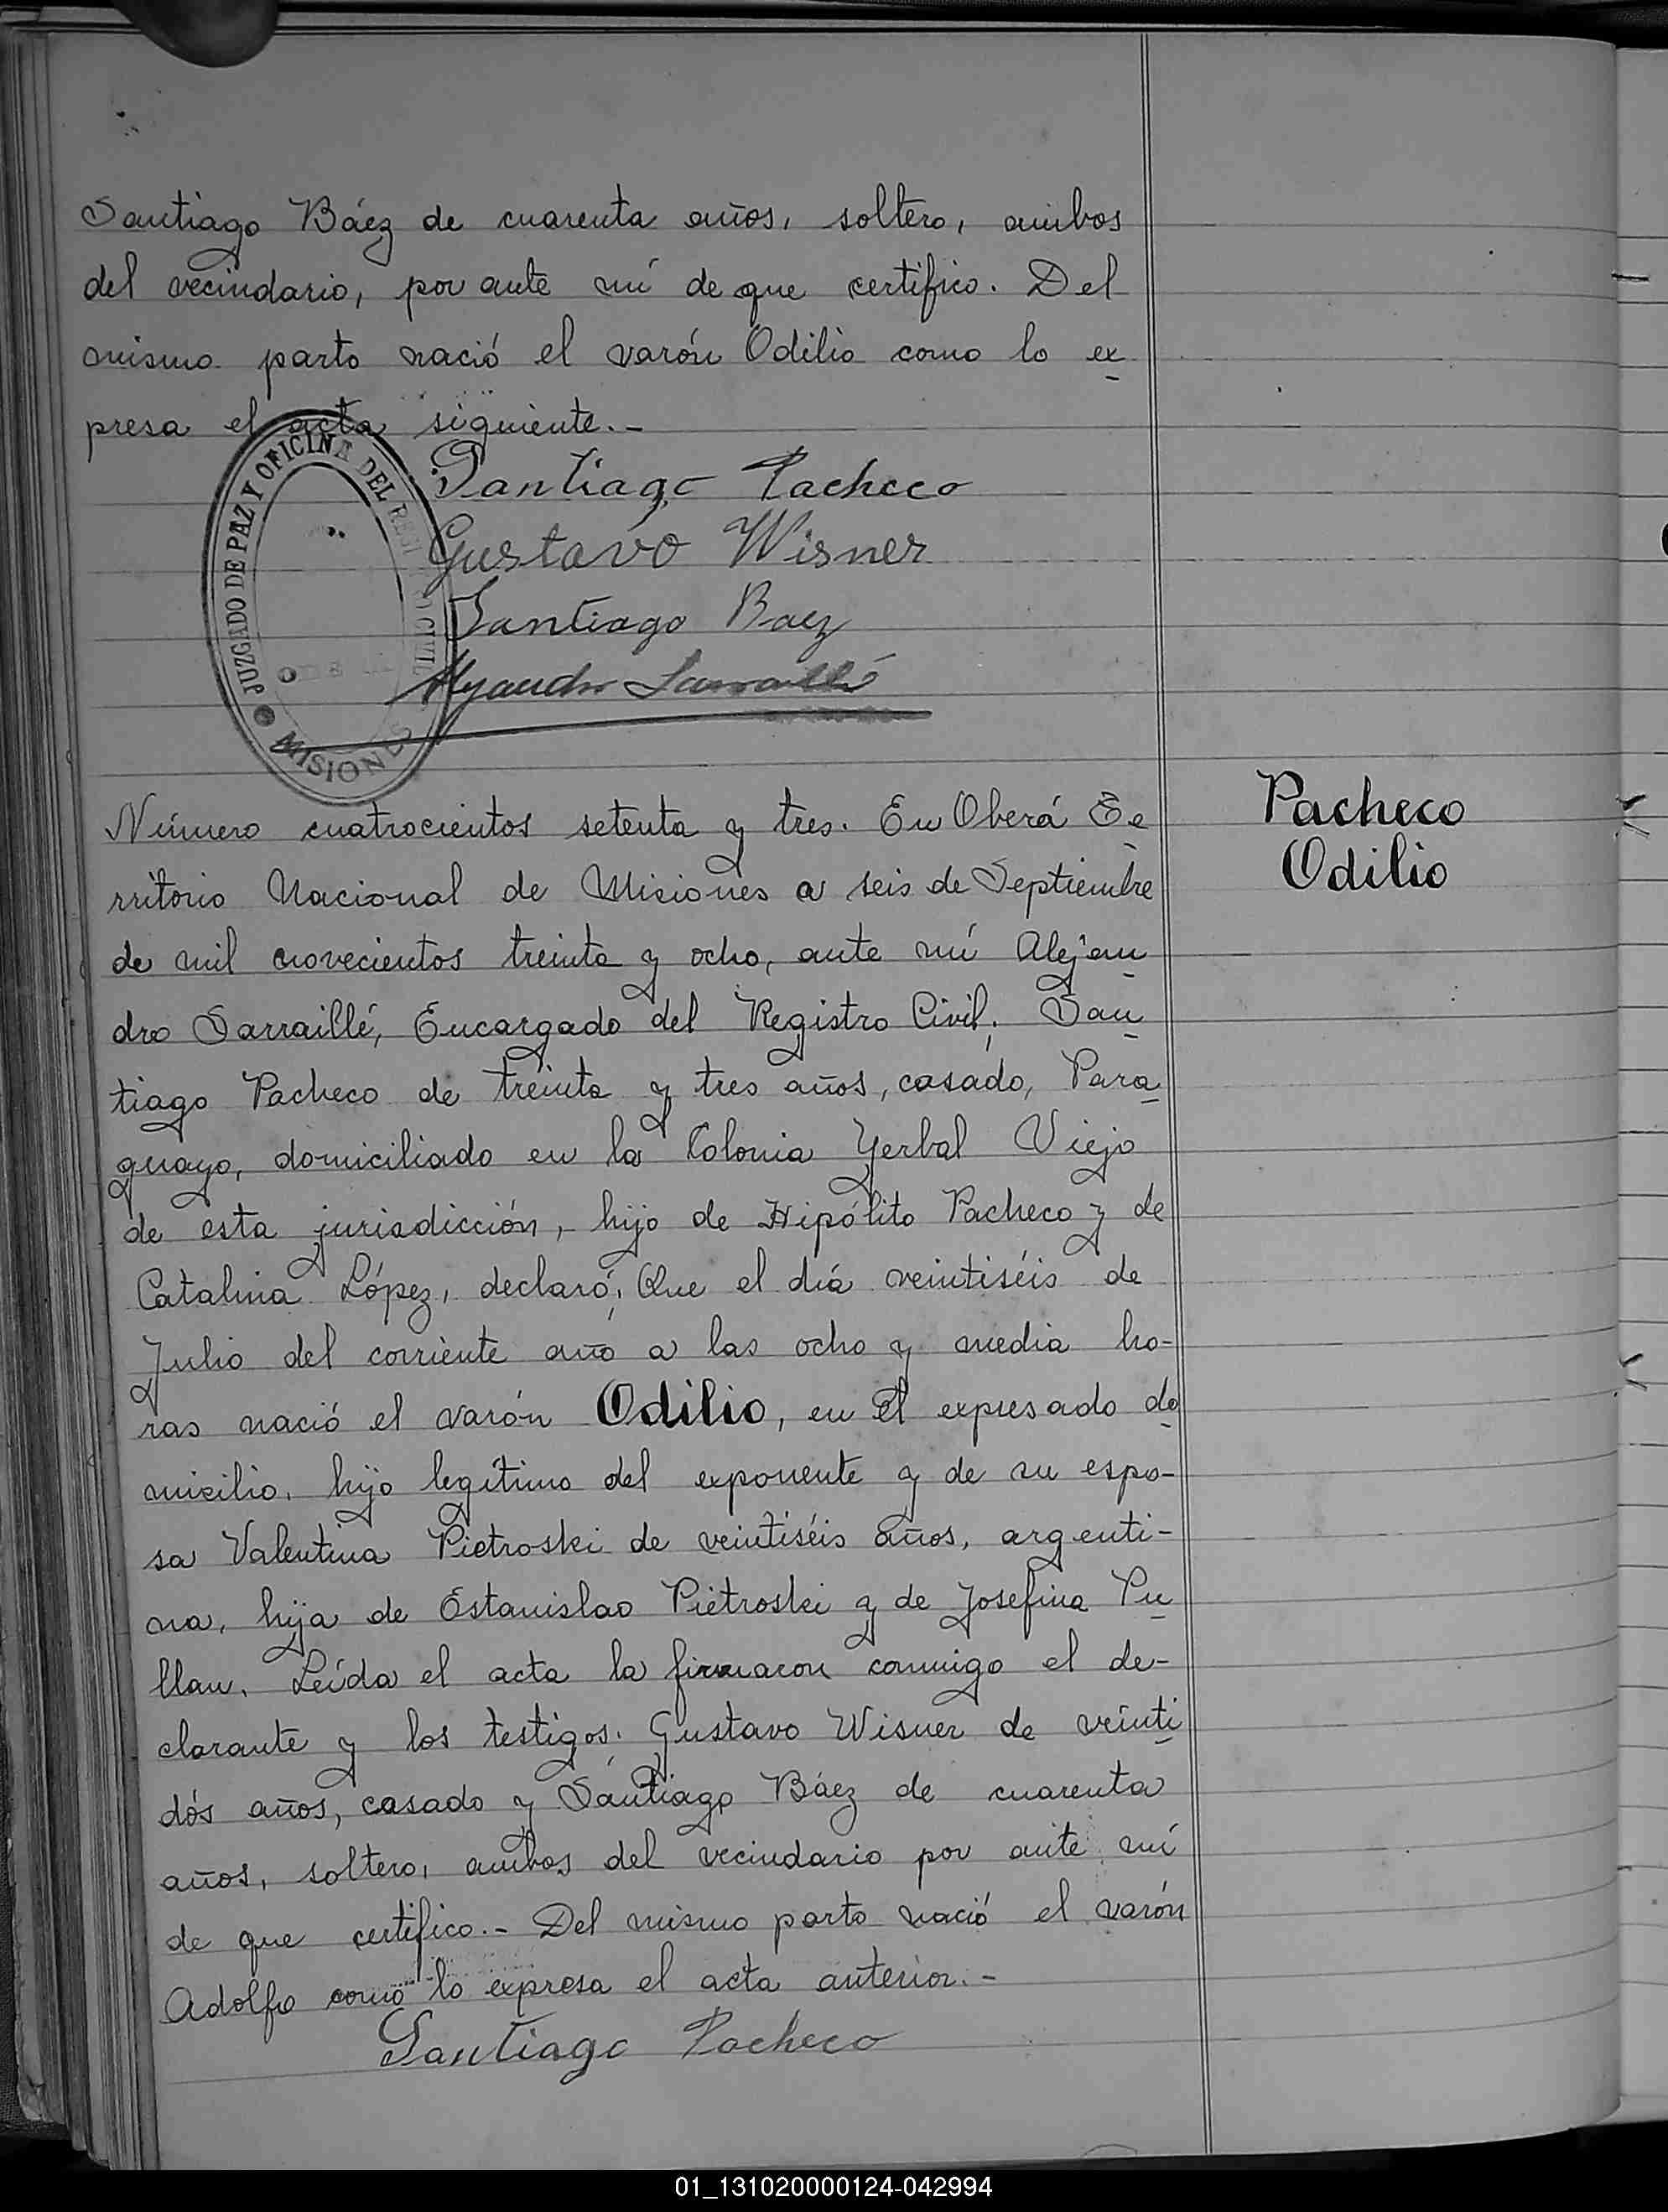 Santiago Báez de cuarenta años, soltero, ambos
del vecindario, por ante mí de que certifico. Del
mismo parto nació el varón Odilio como lo ex
presa el acta siguiente.-
Santiago Pacheco
Gustavo Wisner
Santiago Baez
Alejandro Sarraillé
JUZGADO DE PAZ Y OFICINA DEL REGISTRO CIVIL
MISIONES
Número cuatrocientos setenta y tres. En Oberá Te
rritorio Nacional de Misiones a seis de Septiembre
de mil novecientos treinta y ocho, ante mí Alejan
dro Sarraillé, Encargado del Registro Civil; San
tiago Pacheco de treinta y tres años, casado, Para
guayo, domiciliado en la Colonia Yerbal Viejo
de esta jurisdicción, hijo de Hipólito Pacheco y de
Catalina López, declaró; Que el día veintiséis de
Julio del corriente año a las ocho y media ho-
ras nació el varón Odilio, en el expresado do
micilio, hijo legítimo del exponente y de su espo-
sa Valentina Pietroski de veintiséis años, argenti-
na, hija de Estanislao Pietroski y de Josefina Pu
llan. Leída el acta la firmaron conmigo el de-
clarante y los testigos: Gustavo Wisner de veinti
dós años, casado y Santiago Báez de cuarenta
años, soltero, ambos del vecindario por ante mí
de que certifico.- Del mismo parto nació el varón
Adolfo como lo expresa el acta anterior.-
Santiago Pacheco
Pacheco
Odilio
01_131020000124-042994